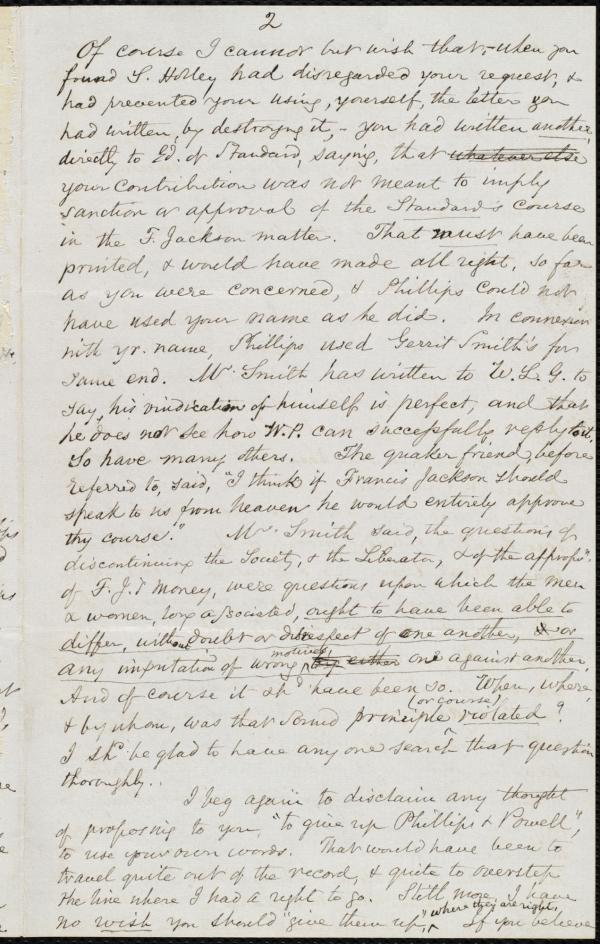 2
Of course I cannot but wish that, when you
found S. Holley had disregarded your request, &
had prevented your using, yourself, the letter you
had written, by destroying it, - you had written another,
directly to Ed. of Standard, saying, that whatever else
your contribution was not meant to imply
sanction or approval of the Standard's course
in the F. Jackson matter. That must have been
printed, & would have made all right, so far
as you were concerned, & Phillips could not
have used your name as he did. In connexion
with yr. name, Phillips used Gerrit Smith's for
same end. Mr. Smith has written to W. L. G. to
say, his vindication of himself is perfect, and that
he does not see how W.P. can successfully reply to it.
So have many others. The quaker friend, before
referred to, said, "I think if Francis Jackson should
speak to us from heaven he would entirely approve
thy course." Mr. Smith said, the questions of
discontinuing the Society, & the Liberator, & of the appropn.
of F. J.'s money, were questions upon which the men
& women, long associated, ought to have been able to
differ, without doubt or disrespect of one another, & or
any imputation of wrong motives, by either one against another.
And of course it shd. have been so. When, where,
& by whom, was that sound principle (or course) violated?
I shd. be glad to have any one search that question
thoroughly.
I beg again to disclaim any thought
of proposing to you, "to give up Phillips & Powell",
to use your own words. That would have been to
travel quite out of the record, & quite to overstep
the line where I had a right to go. Still more, I have
no wish you should "give them up," where they are right. If you believe